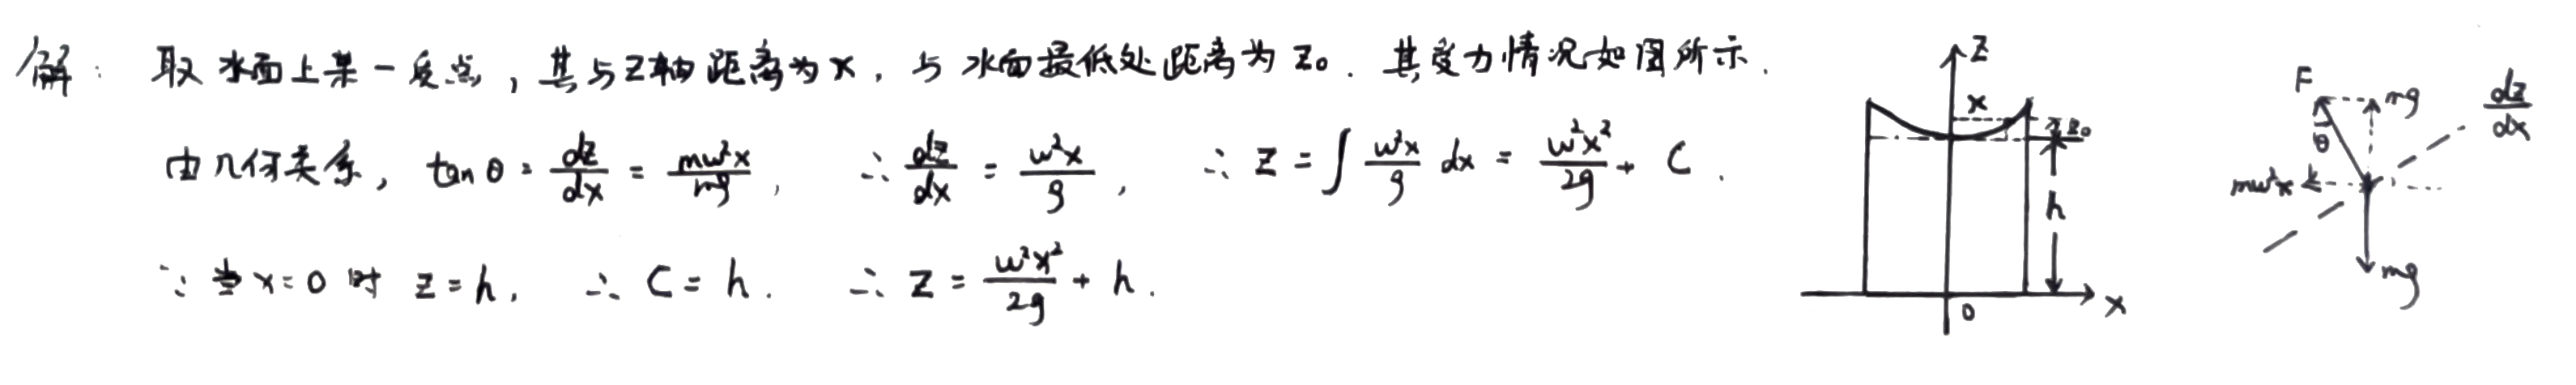 解: 取水面上某一质点,其与Z轴距离为x,与水面最低处距离为Z₀.其受力情况如图所示.
由几何关系, tanθ = dz/dx = mω²x/mg, ∴ dz/dx = ω²x/g, ∴ Z = ∫ ω²x/g dx = ω²x²/2g + C.
∵ 当x=0时 z=h, ∴ C=h. ∴ Z = ω²x²/2g + h.
Z
x
z₀
h
0
x
F
mg
dz/dx
θ
mω²x
mg